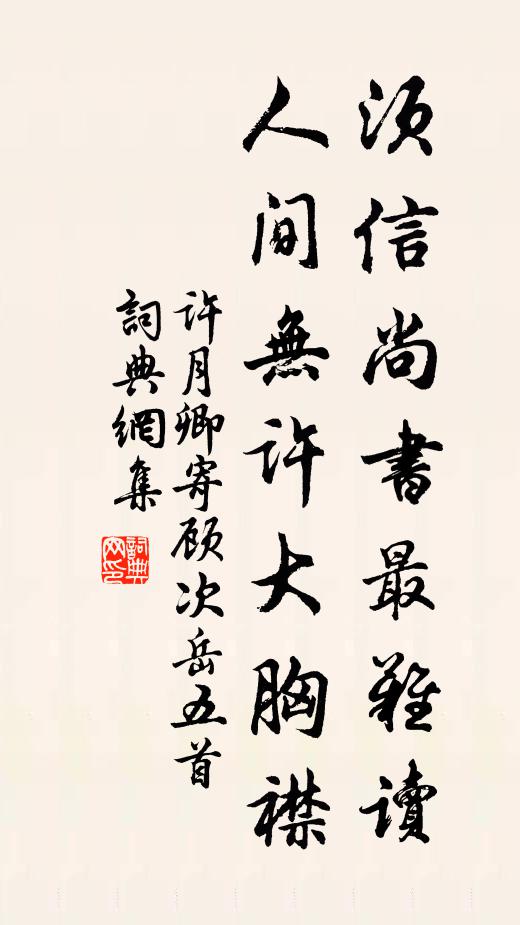 須信尚書最難讀
人間無許大胸襟
許月卿寄顾次岳五首
詞典網集
詞典網印